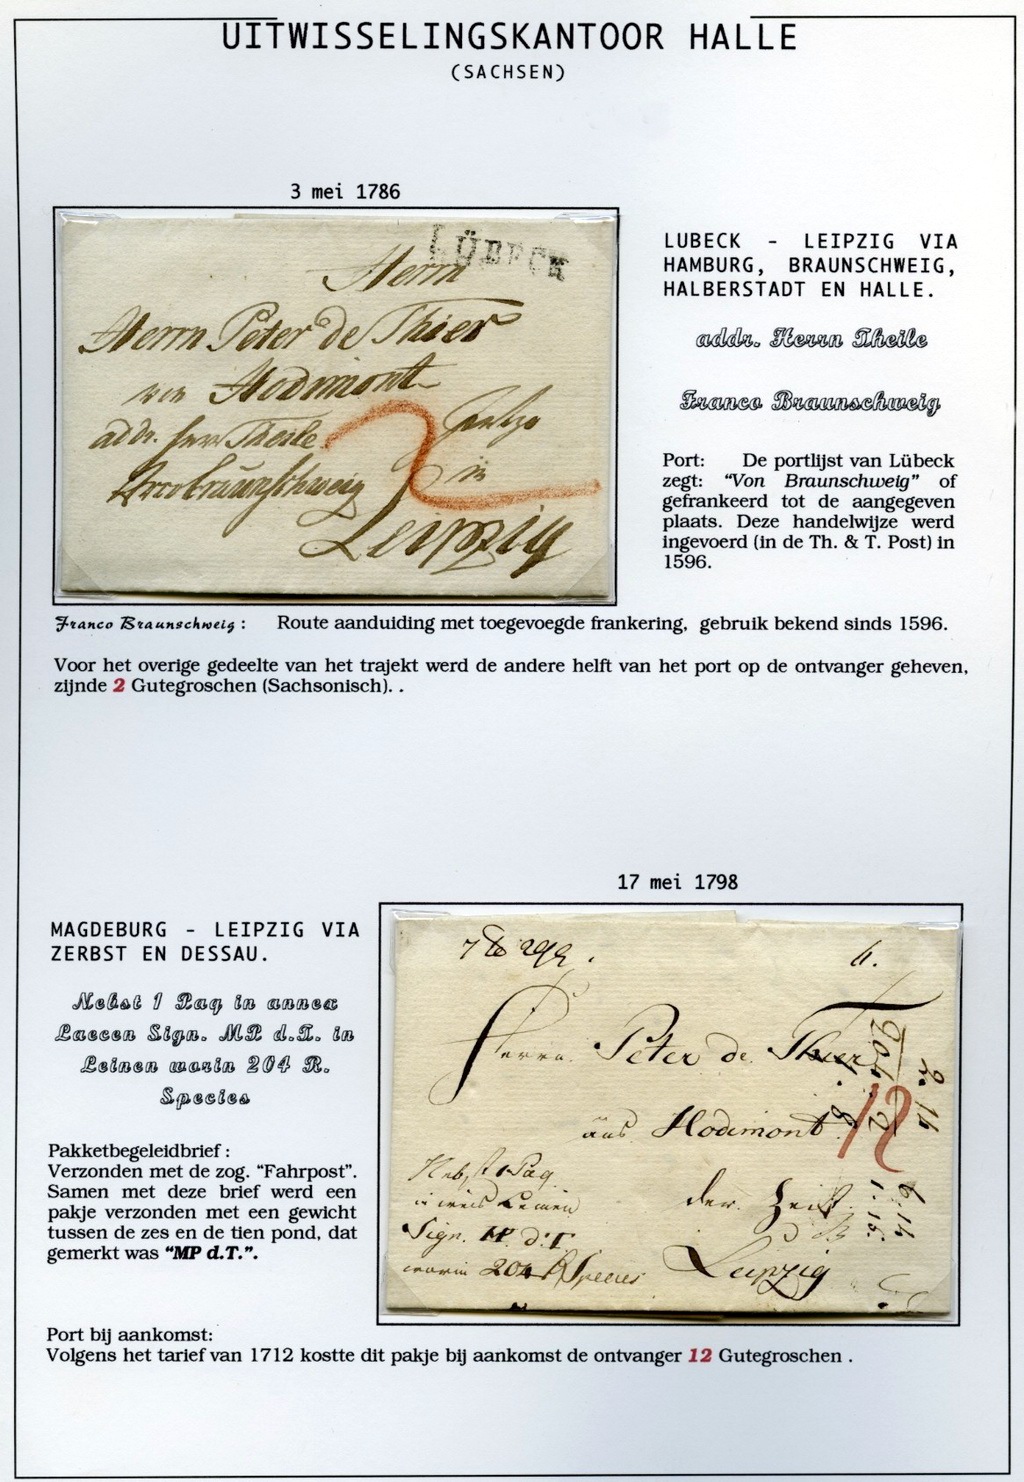 UITWISSELINGSKANTOOR HALLE
(SACHSEN)
3 mei 1786
LÜBECK
Herrn
Herrn Peter de Thier
von Hodimont
addr. Herr Theile
in
Leipzig
LUBECK - LEIPZIG VIA
HAMBURG, BRAUNSCHWEIG,
HALBERSTADT EN HALLE.
addr. Herrn Theile
Franco Braunschweig
Port: De portlijst van Lübeck
zegt: “Von Braunschweig” of
gefrankeerd tot de aangegeven
plaats. Deze handelwijze werd
ingevoerd (in de Th. & T. Post) in
1596.
Franco Braunschweig : Route aanduiding met toegevoegde frankering, gebruik bekend sinds 1596.
Voor het overige gedeelte van het trajekt werd de andere helft van het port op de ontvanger geheven,
zijnde 2 Gutegroschen (Sachsonisch). .
17 mei 1798
MAGDEBURG - LEIPZIG VIA
ZERBST EN DESSAU.
Nebst 1 Paq in annex
Laecen Sign. MP. d.T. in
Leinen worin 204 R.
Species
Pakketbegeleidbrief :
Verzonden met de zog. “Fahrpost”.
Samen met deze brief werd een
pakje verzonden met een gewicht
tussen de zes en de tien pond, dat
gemerkt was “MP d.T.”.
6.
Herrn Peter de Thier
aus Hodimont
12
Nebst 1 Paq
Sign. d:T
worin 204 R Species
der Zeit
Leipzig
Port bij aankomst:
Volgens het tarief van 1712 kostte dit pakje bij aankomst de ontvanger 12 Gutegroschen .